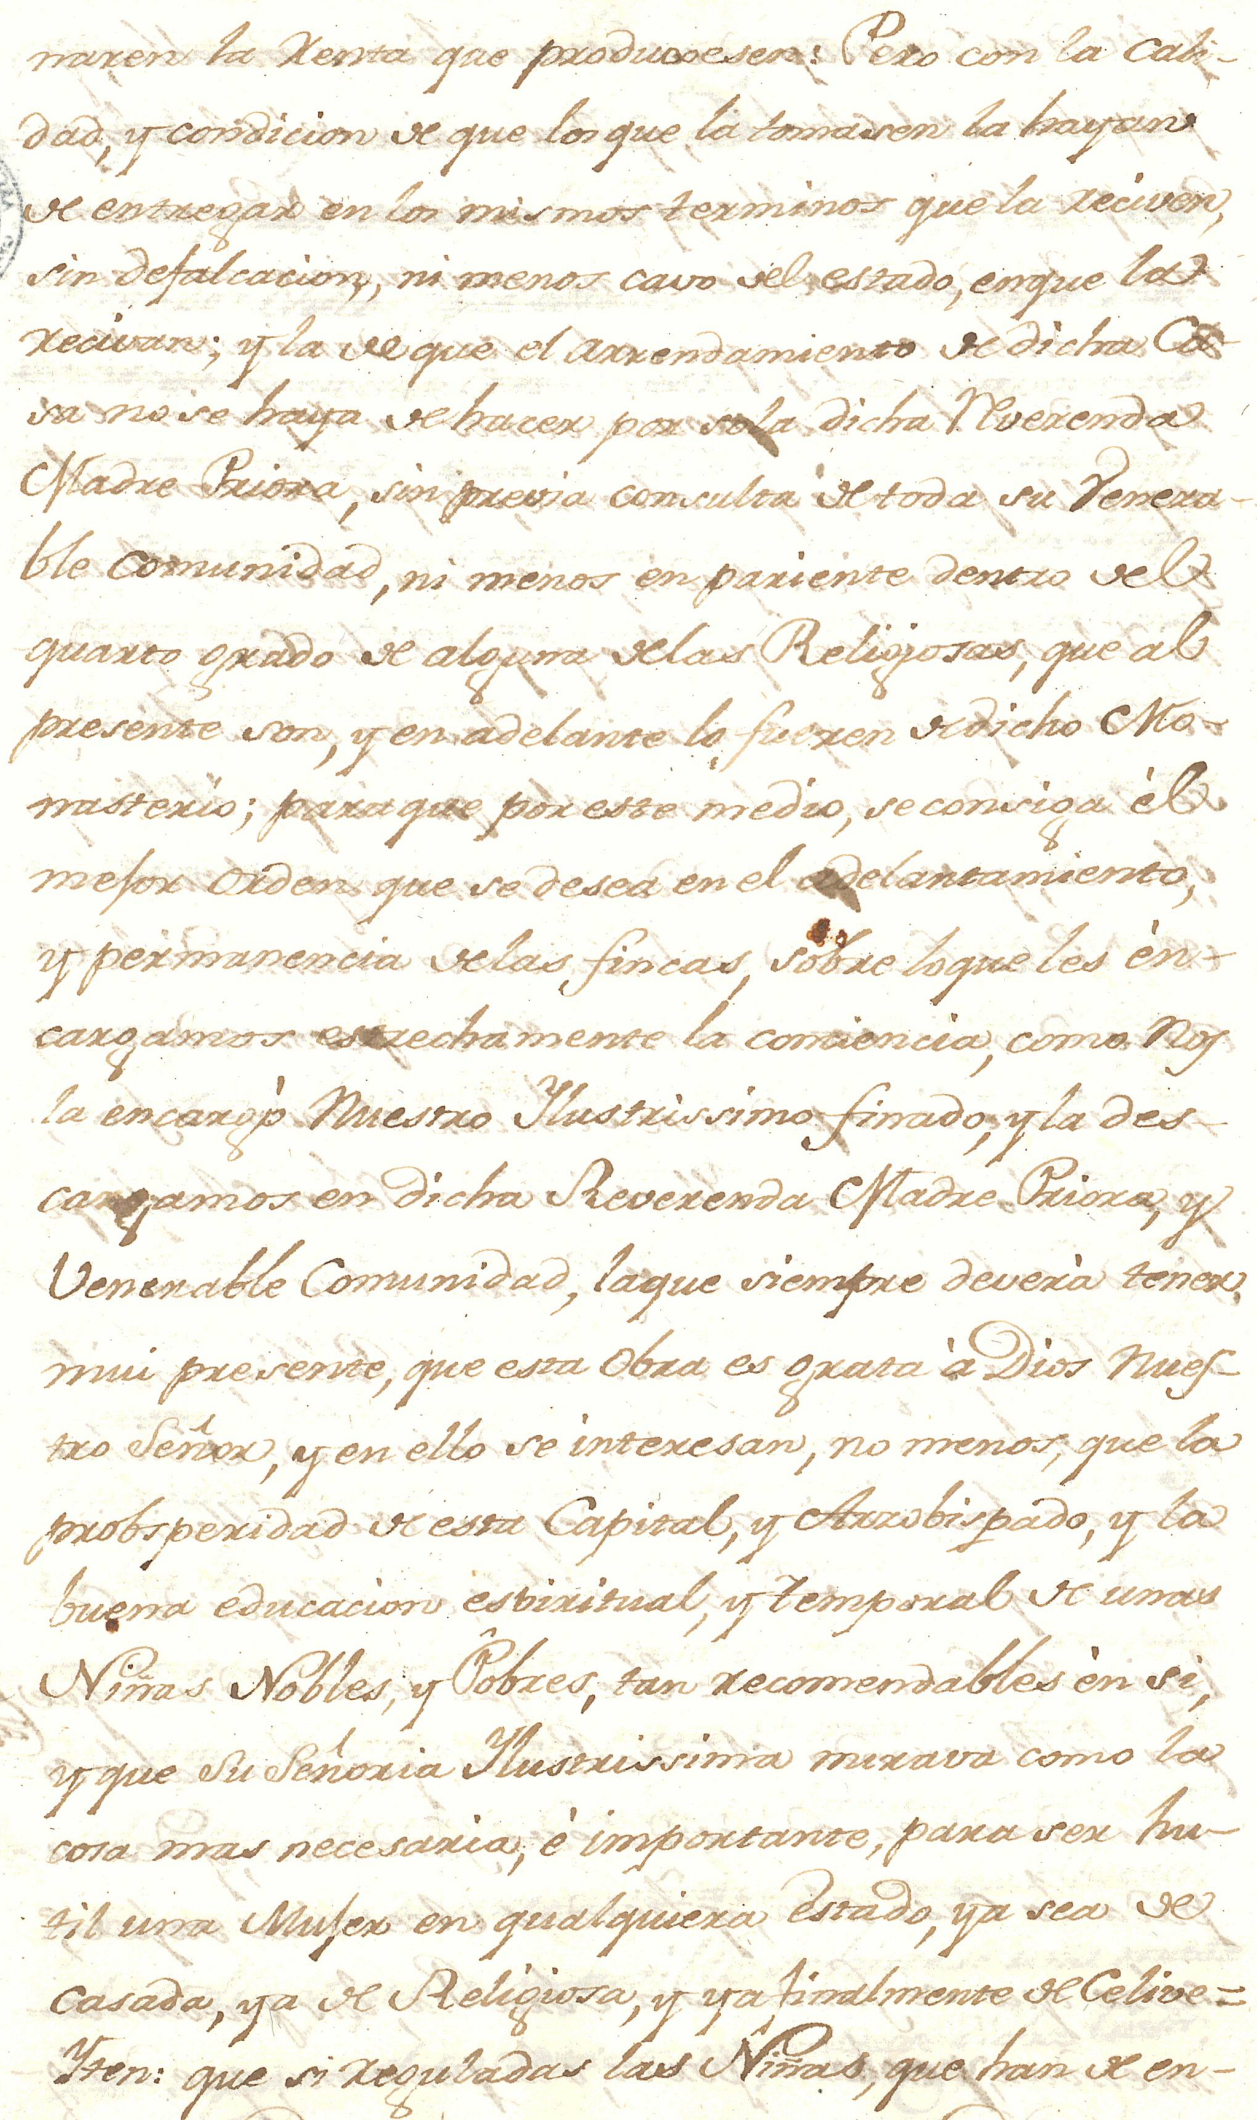 naren la Renta que produxesen: Pero con la cali-
dad, y condicion de que los que la tomasen la hayan
de entregar en los mismos terminos que la reciven,
sin defalcacion, ni menos cavo del estado, enque la
recivan; y la de que el arrendamiento de dicha Ca-
sa no se haya de hacer por sola dicha Rverenda
Madre Priora, sin previa consulta de toda su Venera-
ble Comunidad, ni menos en pariente dentro del
quarto grado de alguna delas Religiosas, que al
presente son, y en adelante lo fueren de dicho Mo-
nasterio; paraque por este medio, se consiga èl
mejor orden que se desea en el adelantamiento,
y permanencia delas fincas, sobre loque les èn-
cargamos estrechamente la conciencia, como Nos
la encargò Nuestro Ilustrissimo finado, y la des-
cargamos en dicha Reverenda Madre Priora, y
Venerable Comunidad, laque siempre deverà tener
mui presente, que esta Obra es grata à Dios Nues-
tro Señor, y en ello se interesan, no menos, que la
probsperidad de esta Capital, y Arzobispado, y la
buena educacion espiritual, y temporal de unas
Niñas Nobles, y Pobres, tan recomendables èn si,
y que Su Señoria Ilustrissima mirava como la
cosa mas necesaria, è importante, para ser hu-
til una Mujer en qualquiera estado, ya sea de
Casada, ya de Religiosa, y ya finalmente de Celive=
Yten: que si reguladas las Niñas, que han de en-